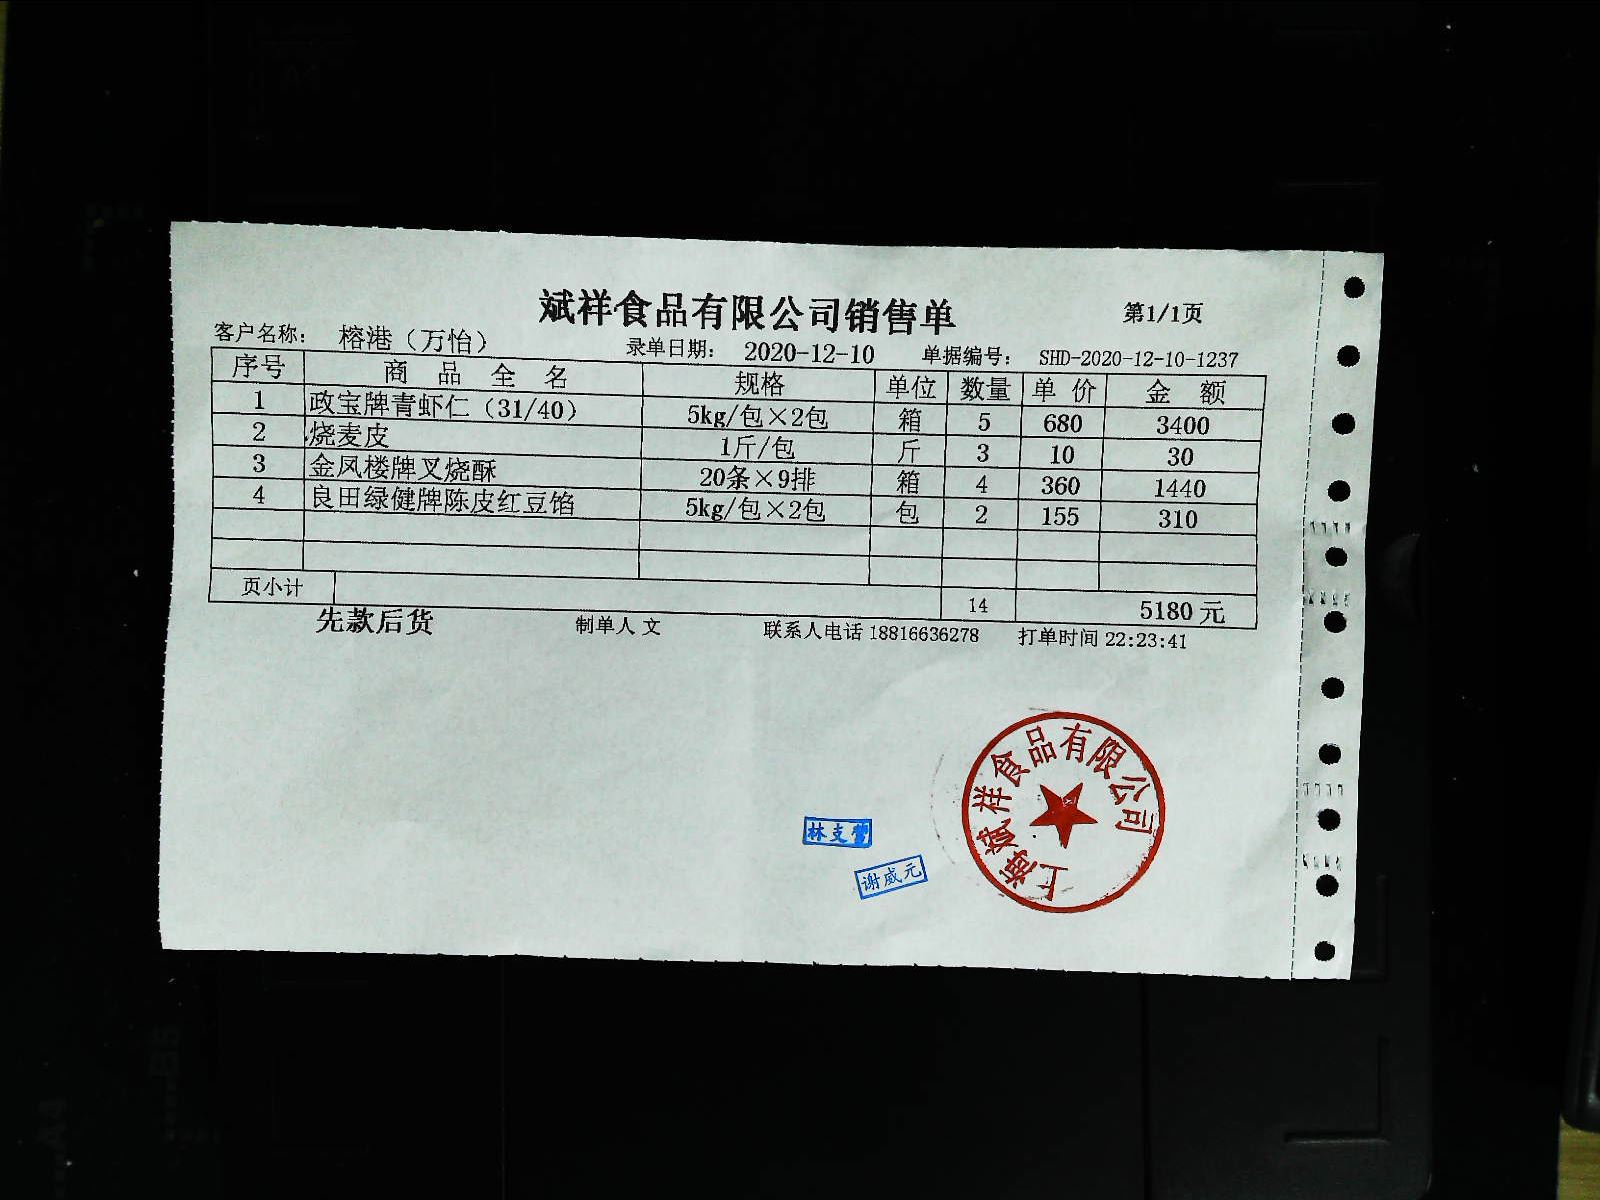 斌祥食品有限公司销售单 第1/1页
客户名称： 榕港（万怡） 录单日期： 2020-12-10 单据编号： SHD-2020-12-10-1237
序号 商品全名 规格 单位 数量 单价 金额
1 政宝牌青虾仁（31/40） 5kg/包×2包 箱 5 680 3400
2 烧麦皮 1斤/包 斤 3 10 30
3 金凤楼牌叉烧酥 20条×9排 箱 4 360 1440
4 良田绿健牌陈皮红豆馅 5kg/包×2包 包 2 155 310
页小计 14 5180元
先款后货 制单人 文 联系人电话 18816636278 打单时间 22:23:41
上海斌祥食品有限公司
林支营
谢威元